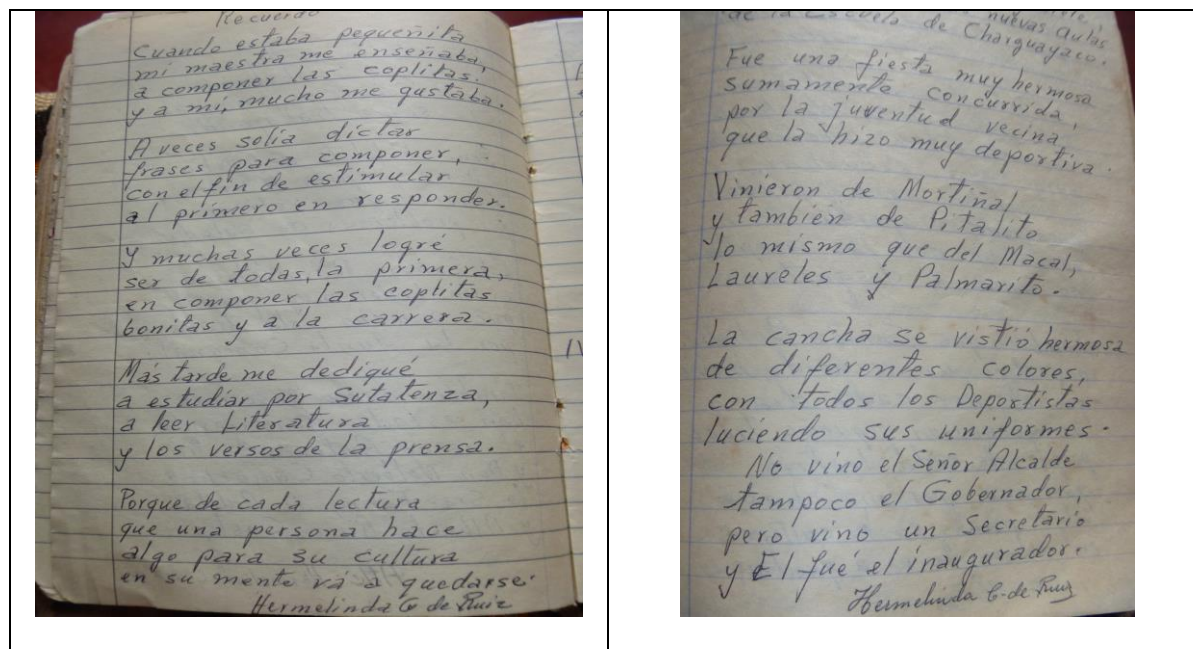 Recuerdo
Cuando estaba pequeñita
mi maestra me enseñaba,
a componer las coplitas.
y a mí, mucho me gustaba.
A veces solía dictar
frases para componer,
con el fin de estimular
al primero en responder.
Y muchas veces logré
ser de todas, la primera,
en componer las coplitas
bonitas y a la carrera.
Más tarde me dediqué
a estudiar por Sutatenza,
a leer Literatura
y los versos de la prensa.
Porque de cada lectura
que una persona hace
algo para su cultura
en su mente vá a quedarse.
Hermelinda G de Ruiz
nuevas aulas
de la Escuela de Charguayaco.
Fue una fiesta muy hermosa
sumamente concurrida,
por la juventud vecina,
que la hizo muy deportiva.
Vinieron de Mortiñal
y también de Pitalito
lo mismo que del Macal,
Laureles y Palmarito.
La cancha se vistió hermosa
de diferentes colores,
con todos los Deportistas
luciendo sus uniformes.
No vino el Señor Alcalde
tampoco el Gobernador,
pero vino un Secretario
y El fué el inaugurador.
Hermelinda G. de Ruiz